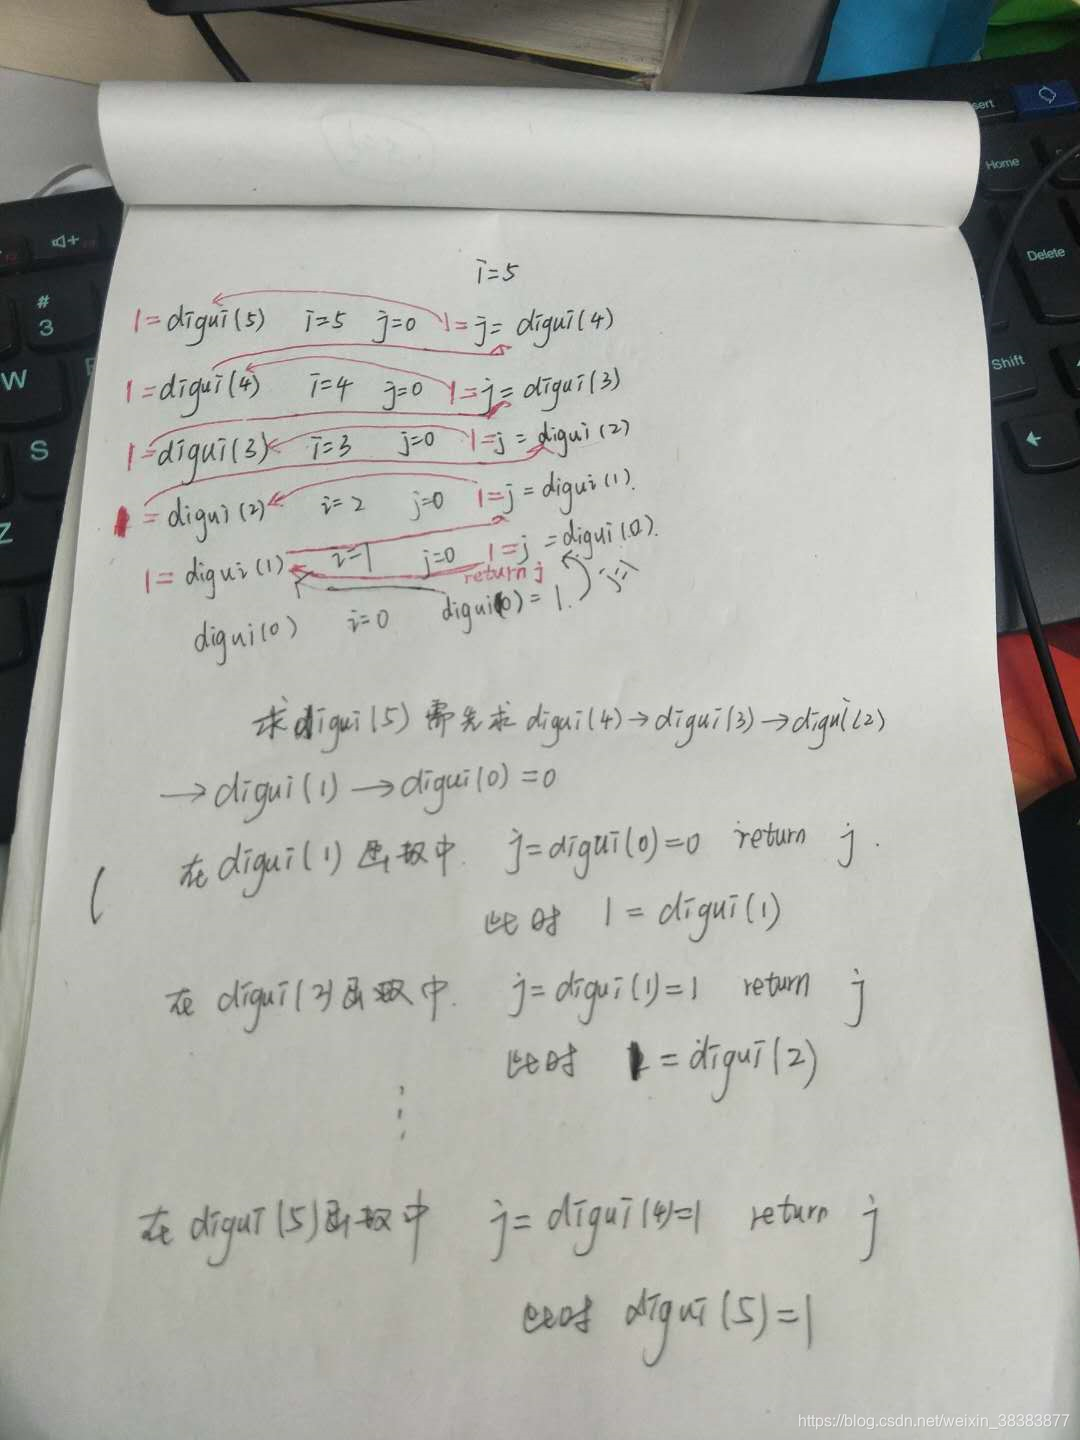 sert
Home
Delete
Shift
#
3
W
S
Z
i=5
1=digui(5) i=5 j=0 1=j=digui(4)
1=digui(4) i=4 j=0 1=j=digui(3)
1=digui(3) i=3 j=0 1=j=digui(2)
=digui(2) i=2 j=0 1=j=digui(1).
1=digui(1) i=1 j=0 1=j=digui(0).
return j
digui(0) i=0 digui(0)=1. j=1
求digui(5)需先求digui(4)→digui(3)→digui(2)
→digui(1)→digui(0)=0
在digui(1)函数中. j=digui(0)=0 return j.
此时 1=digui(1)
在digui(2)函数中. j=digui(1)=1 return j
此时 1=digui(2)
⋮
在digui(5)函数中 j=digui(4)=1 return j
此时 digui(5)=1
https://blog.csdn.net/weixin_38383877